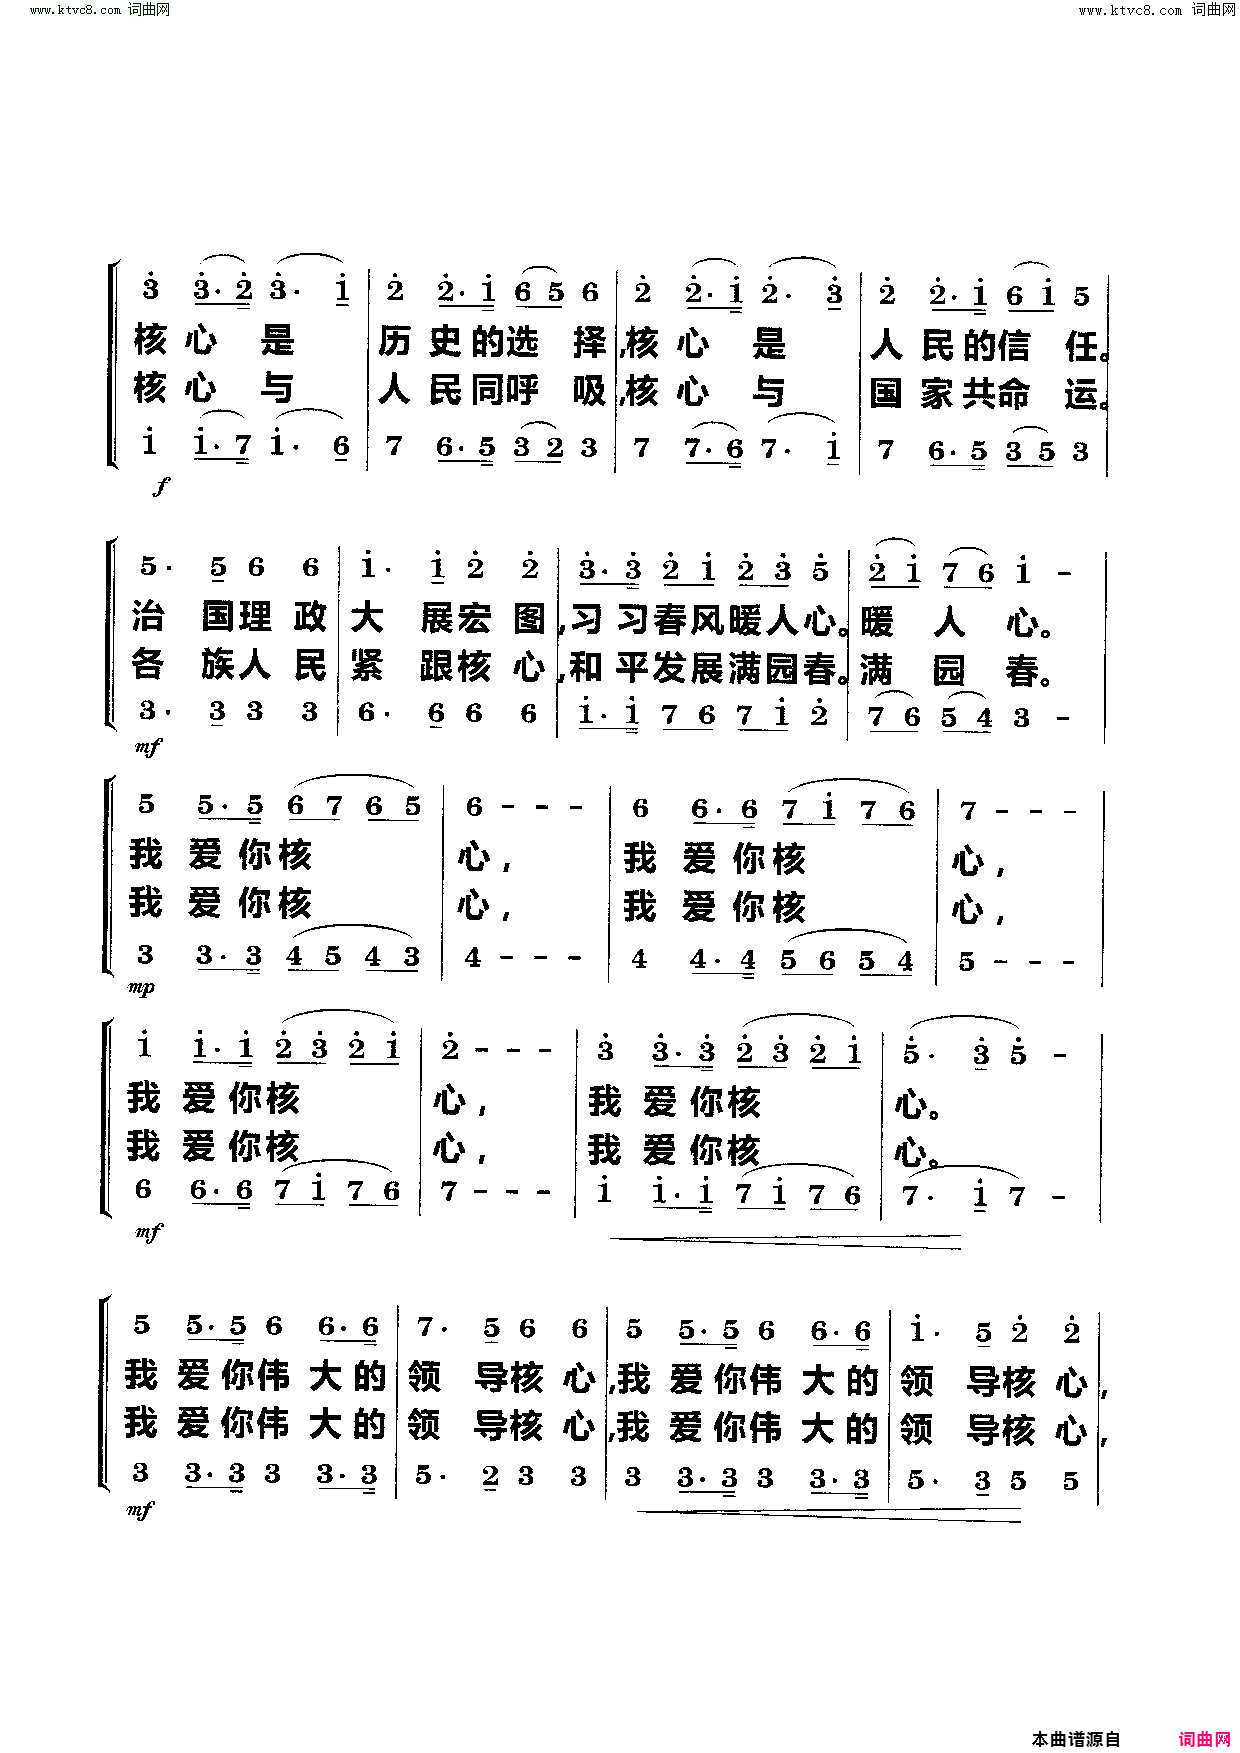 www.ktvc8.com 词曲网 www.ktvc8.com 词曲网
3 3·2 3· 1 2 2·1 6 5 6 2 2·1 2· 3 2 2·1 6 1 5
核心是 历史的选择,核心是 人民的信任。
核心与 人民同呼吸,核心与 国家共命运。
1 1·7 1· 6 7 6·5 3 2 3 7 7·6 7· 1 7 6·5 3 5 3
f
5· 5 6 6 1· 1 2 2 3·3 2 1 2 3 5 2 1 7 6 1 -
治国理政大展宏图,习习春风暖人心。暖人心。
各族人民紧跟核心,和平发展满园春。满园春。
3· 3 3 3 6· 6 6 6 1·1 7 6 7 1 2 7 6 5 4 3 -
mf
5 5·5 6 7 6 5 6 - - - 6 6·6 7 1 7 6 7 - - -
我爱你核心,我爱你核心,
我爱你核心,我爱你核心,
3 3·3 4 5 4 3 4 - - - 4 4·4 5 6 5 4 5 - - -
mp
1 1·1 2 3 2 1 2 - - - 3 3·3 2 3 2 1 5· 3 5 -
我爱你核心,我爱你核心。
我爱你核心,我爱你核心。
6 6·6 7 1 7 6 7 - - - 1 1·1 7 1 7 6 7· 1 7 -
mf
5 5·5 6 6·6 7· 5 6 6 5 5·5 6 6·6 1· 5 2 2
我爱你伟大的领导核心,我爱你伟大的领导核心,
我爱你伟大的领导核心,我爱你伟大的领导核心,
3 3·3 3 3·3 5· 2 3 3 3 3·3 3 3·3 5· 3 5 5
mf
本曲谱源自 词曲网